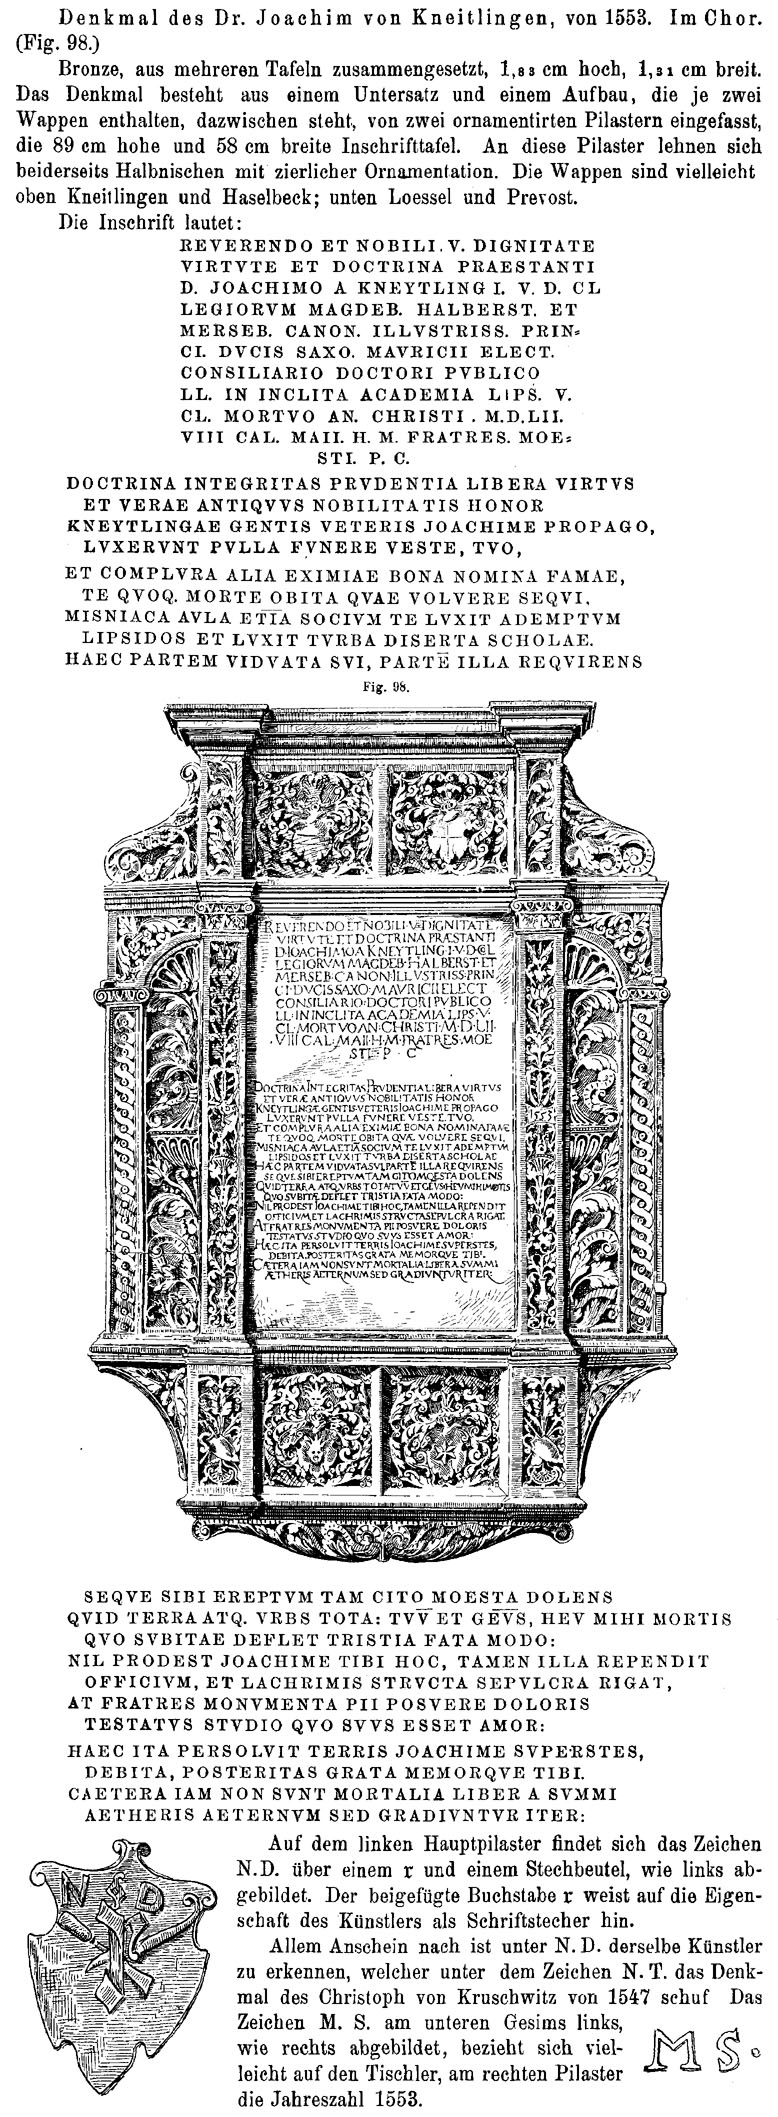 Denkmal des Dr. Joachim von Kneitlingen, von 1553. Im Chor.
(Fig. 98.)
Bronze, aus mehreren Tafeln zusammengesetzt, 1,83 cm hoch, 1,31 cm breit.
Das Denkmal besteht aus einem Untersatz und einem Aufbau, die je zwei
Wappen enthalten, dazwischen steht, von zwei ornamentirten Pilastern eingefasst,
die 89 cm hohe und 58 cm breite Inschrifttafel. An diese Pilaster lehnen sich
beiderseits Halbnischen mit zierlicher Ornamentation. Die Wappen sind vielleicht
oben Kneitlingen und Haselbeck; unten Loessel und Prevost.
Die Inschrift lautet:
REVERENDO ET NOBILI. V. DIGNITATE
VIRTVTE ET DOCTRINA PRAESTANTI
D. JOACHIMO A KNEYTLING I. V. D. CL
LEGIORVM MAGDEB. HALBERST. ET
MERSEB. CANON. ILLVSTRISS. PRIN=
CI. DVCIS SAXO. MAVRICII ELECT.
CONSILIARIO DOCTORI PVBLICO
LL. IN INCLITA ACADEMIA LIPS. V.
CL. MORTVO AN. CHRISTI . M.D.LII.
VIII CAL. MAII. H. M. FRATRES. MOE=
STI. P. C.
DOCTRINA INTEGRITAS PRVDENTIA LIBERA VIRTVS
ET VERAE ANTIQVVS NOBILITATIS HONOR
KNEYTLINGAE GENTIS VETERIS JOACHIME PROPAGO,
LVXERVNT PVLLA FVNERE VESTE, TVO,
ET COMPLVRA ALIA EXIMIAE BONA NOMINA FAMAE,
TE QVOQ. MORTE OBITA QVAE VOLVERE SEQVI.
MISNIACA AVLA ETI̅A̅ SOCIVM TE LVXIT ADEMPTVM
LIPSIDOS ET LVXIT TVRBA DISERTA SCHOLAE.
HAEC PARTEM VIDVATA SVI, PARTE̅ ILLA REQVIRENS
Fig. 98.
REVERENDO ET NOBILI·V·DIGNITATE
VIRTVTE ET DOCTRINA PRÆSTANTI
D·IOACHIMO A KNEYTLING·I·V·D·CL
LEGIORVM MAGDEB·HALBERST·ET
MERSEB·CANON·ILLVSTRISS·PRIN
CI·DVCIS SAXO·MAVRICII ELECT
CONSILIARIO·DOCTORI PVBLICO
LL·IN INCLITA ACADEMIA LIPS·V·
CL·MORTVO AN·CHRISTI·M·D·LII·
·VIII CAL·MAII·H·M·FRATRES·MOE
STI·P·C
DOCTRINA INTEGRITAS PRVDENTIA LIBERA VIRTVS
ET VERÆ ANTIQVVS NOBILITATIS HONOR
KNEYTLINGÆ GENTIS VETERIS IOACHIME PROPAGO
LVXERVNT PVLLA FVNERE VESTE, TVO,
ET COMPLVRA ALIA EXIMIÆ BONA NOMINA FAMÆ
TE QVOQ, MORTE OBITA QVÆ VOLVERE SEQVI,
MISNIACA AVLA ETIĀ SOCIVM TE LVXIT ADEMPTVM
LIPSIDOS ET LVXIT TVRBA DISERTA SCHOLAE
HÆC PARTEM VIDVATA SVI, PARTĒ ILLA REQVIRENS
SEQVE SIBI EREPTVM TAM CITO MOESTA DOLENS
QVID TERRA ATQ, VRBS TOTA TVV̅ ET GEV̅S HEV MIHI MORTIS
QVO SVBITÆ DEFLET TRISTIA FATA MODO:
NIL PRODEST IOACHIME TIBI HOC, TAMEN ILLA REPENDIT
OFFICIVM, ET LACHRIMIS STRVCTA SEPVLCRA RIGAT.
AT FRATRES MONVMENTA PII POSVERE DOLORIS
TESTATVS STVDIO QVO SVVS ESSET AMOR:
HÆC ITA PERSOLVIT TERRIS IOACHIME SVPERSTES,
DEBITA, POSTERITAS GRATA MEMORQVE TIBI.
CÆTERA IAM NON SVNT MORTALIA LIBERA SVMMI
ÆTHERIS AETERNVM SED GRADIVNTVR ITER·
1553
SEQVE SIBI EREPTVM TAM CITO MOESTA DOLENS
QVID TERRA ATQ. VRBS TOTA: TVV̅ ET GEV̅S, HEV MIHI MORTIS
QVO SVBITAE DEFLET TRISTIA FATA MODO:
NIL PRODEST JOACHIME TIBI HOC, TAMEN ILLA REPENDIT
OFFICIVM, ET LACHRIMIS STRVCTA SEPVLCRA RIGAT,
AT FRATRES MONVMENTA PII POSVERE DOLORIS
TESTATVS STVDIO QVO SVVS ESSET AMOR:
HAEC ITA PERSOLVIT TERRIS JOACHIME SVPERSTES,
DEBITA, POSTERITAS GRATA MEMORQVE TIBI.
CAETERA IAM NON SVNT MORTALIA LIBER A SVMMI
AETHERIS AETERNVM SED GRADIVNTVR ITER:
N D
Auf dem linken Hauptpilaster findet sich das Zeichen
N.D. über einem r und einem Stechbeutel, wie links ab-
gebildet. Der beigefügte Buchstabe r weist auf die Eigen-
schaft des Künstlers als Schriftstecher hin.
Allem Anschein nach ist unter N. D. derselbe Künstler
zu erkennen, welcher unter dem Zeichen N. T. das Denk-
mal des Christoph von Kruschwitz von 1547 schuf Das
Zeichen M. S. am unteren Gesims links,
wie rechts abgebildet, bezieht sich viel-
leicht auf den Tischler, am rechten Pilaster
die Jahreszahl 1553.
M S.